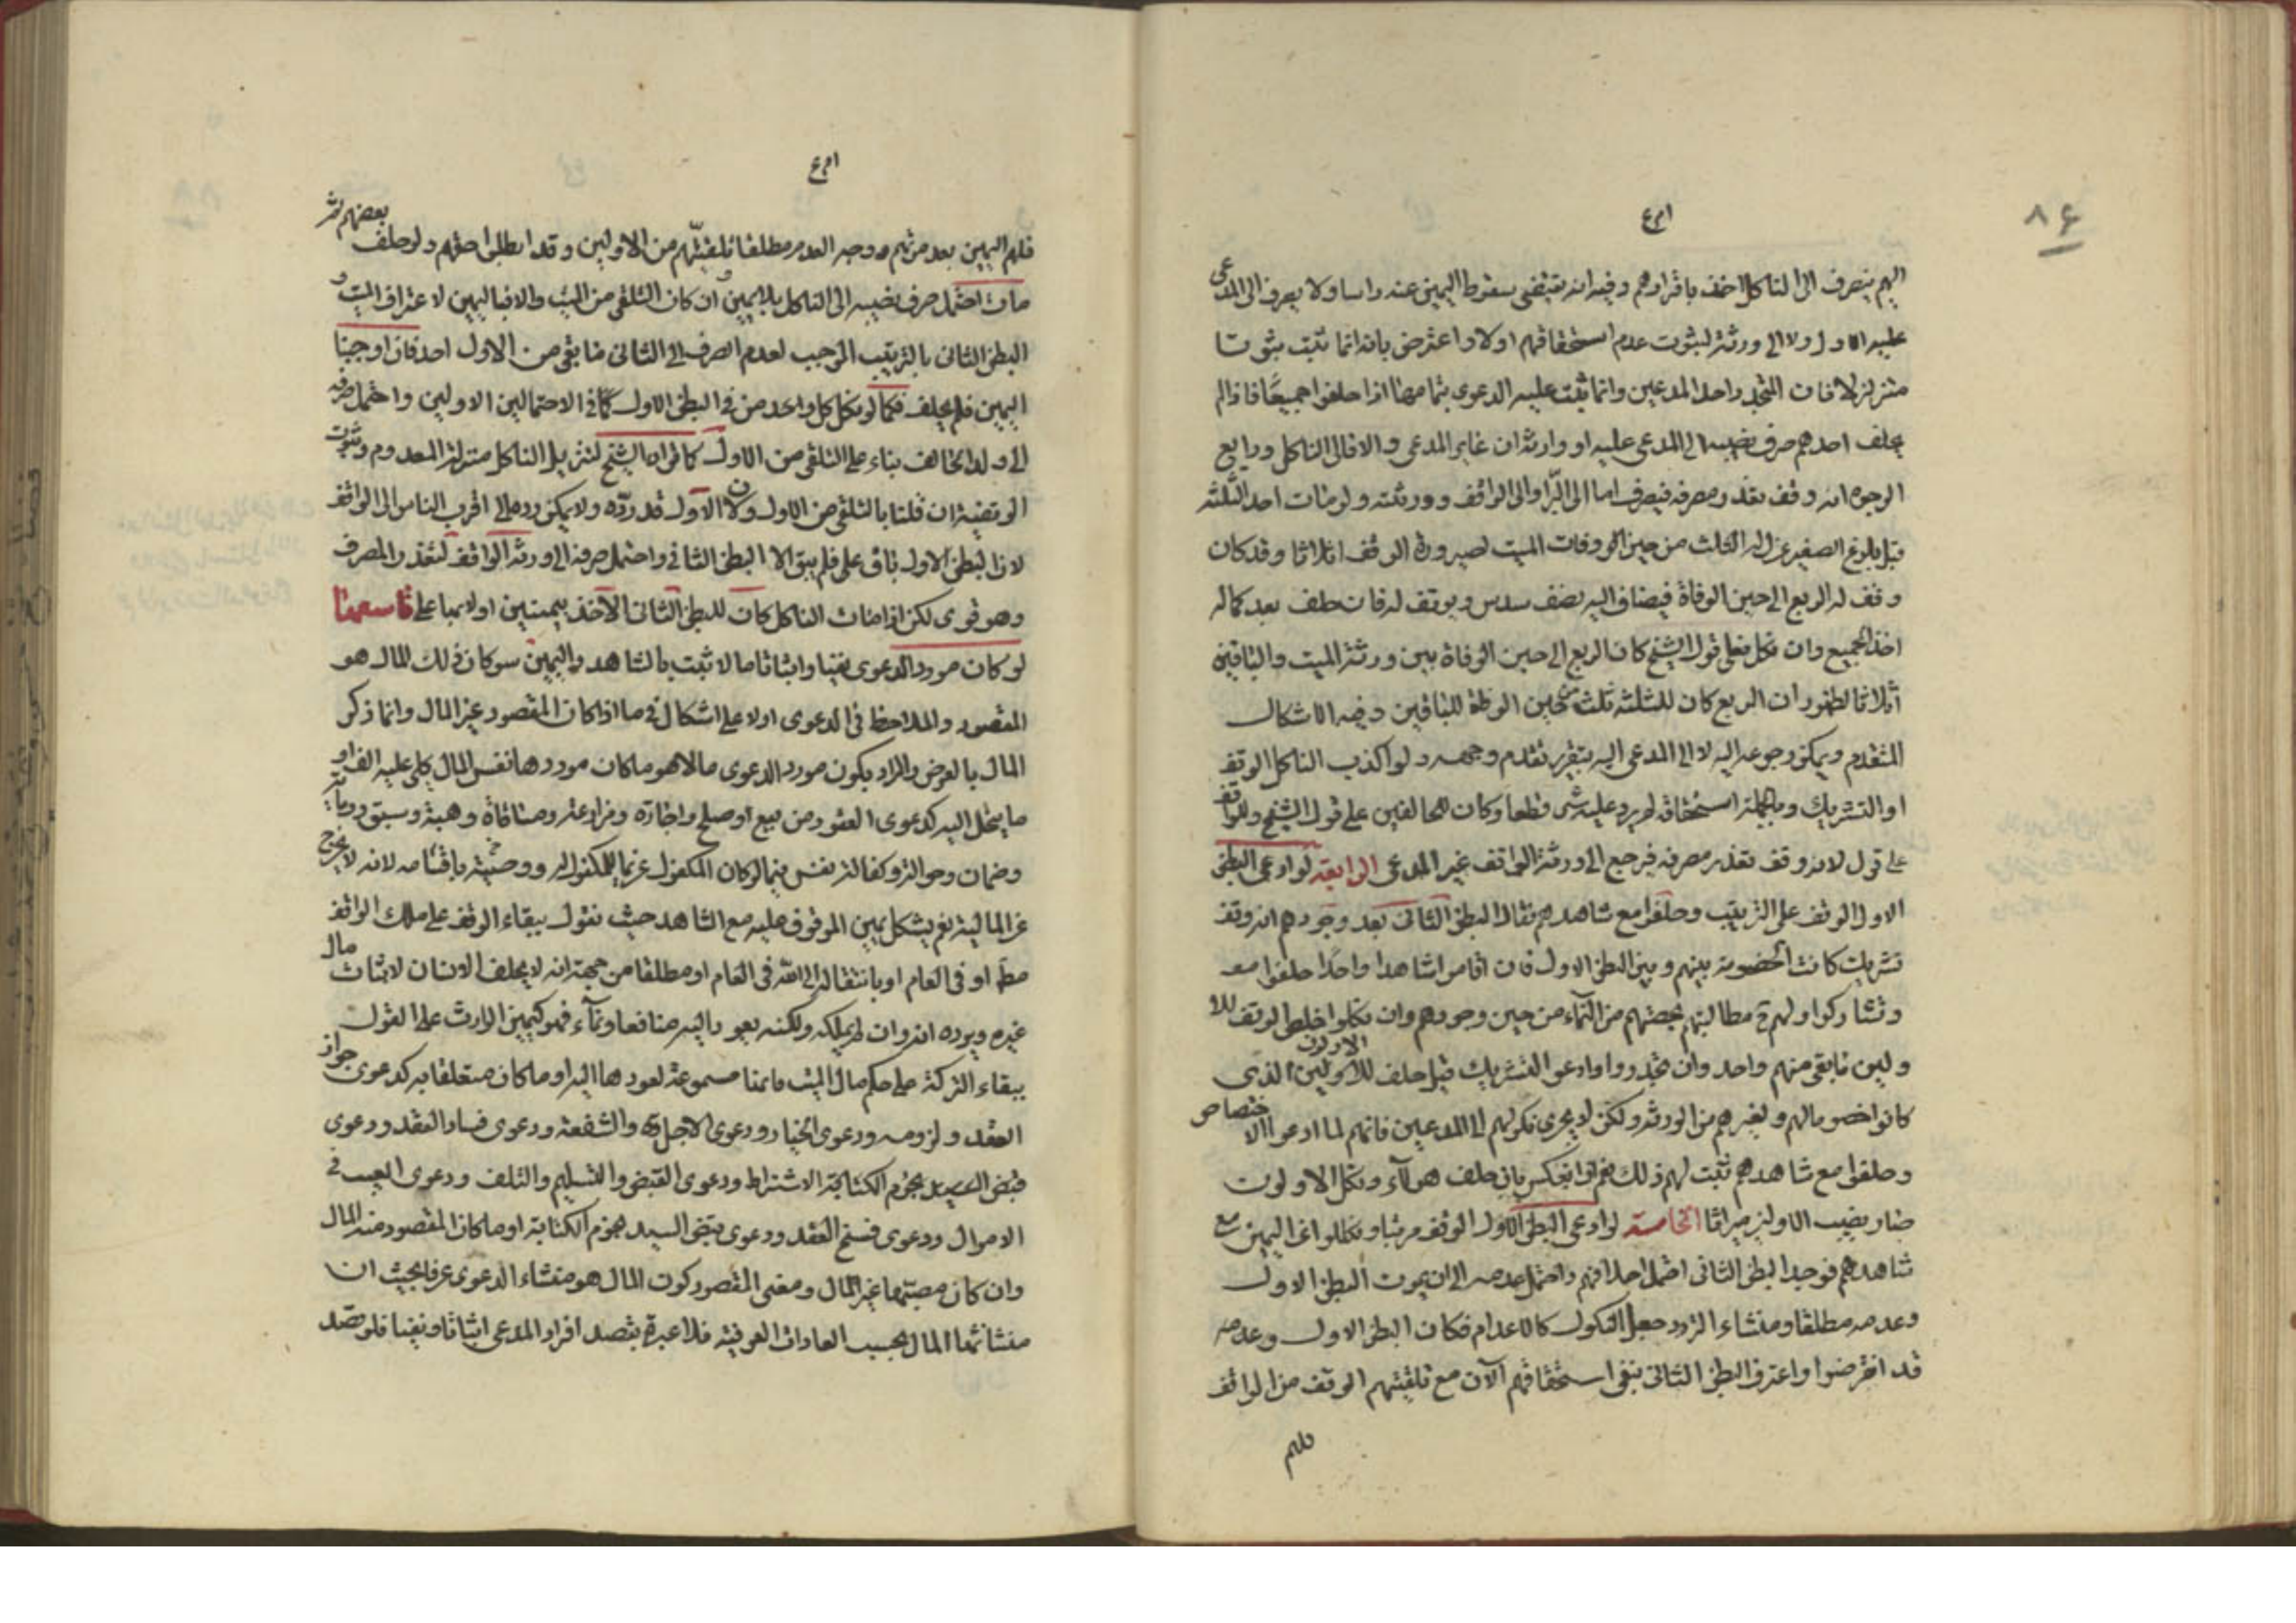 ٨٤
اليهم ينصرف الى الناكل اخذ باقرارهم وفيه انه يقتضى سقوط اليمين عنه راسا ولا يصرف الى المدعى
عليه الاول ولا الى ورثته لثبوت عدم استحقاقهم اولا واعترض بانه انما ثبت ثبوتا
متزلزلا فان المتجدد احد المدعين وانما يثبت عليه الدعوى بتمامها اذا حلفوا جميعا فاذا لم
يحلف احدهم صرف نصيبه الى المدعى عليه او وارثه ان غاير المدعى والا فالى الناكل ورابع
الوجوه انه وقف تعذر مصرفه فيصرف اما الى البر او الى الواقف وورثته ولو مات احد الثلثة
قبل بلوغ الصغير عزل له الثلث من حين وفات الميت لصيرورة الوقف اثلاثا وقد كان
وقف له الربع الى حين الوفاة فيضاف اليه نصف سدس ويوقف له فان حلف بعد كماله
اخذ الجميع وان نكل فعلى قول الشيخ كان الربع الى حين الوفاة بين ورثة الميت والباقين
اثلاثا لظهور ان الربع كان للثلثة وثلث من حين الوفاة للباقين وفيه الاشكال
المتقدم ويمكن رجوعه اليه لا الى المدعى اليه بتقرير تقدم وجهه ولو اكذب الناكل الوقف
او التشريك وبالجملة استحقاقه لم يرد عليه شى قطعا وكان للحالفين على قول الشيخ وللواقف
على قول لانه وقف تعذر مصرفه فيرجع الى ورثة الواقف غير المدعى الرابعة لو ادعى البطن
الاول الوقف على الترتيب وحلفوا مع شاهدهم فقال البطن الثانى بعد وجودهم انه وقف
تشريك كانت الخصومة بينهم وبين البطن الاول فان اقاموا شاهدا واحدا حلفوا معه
وتشاركوا ولهم ح مطالبتهم بحصتهم من النماء من حين وجودهم وان نكلوا خلص الوقف للاولين
ما بقى منهم واحد وان تجددوا وادعوا التشريك قبل حلف الاولين الذى
كانوا خصوما لهم ولغيرهم من الورثة ولكن لا يجرى نكولهم الى المدعين فانهم لما ادعوا الاختصاص
وحلفوا مع شاهدهم ثبت لهم ذلك نعم لو انعكس بان حلف هؤلاء ونكل الاولون
صار نصيب الاولين ميراثا الخامسة لو ادعى البطن الاول الوقف مرتبا ونكلوا عن اليمين مع
شاهدهم فوجد البطن الثانى احتمل احلافهم واحتمل عدمه الى ان يموت البطن الاول
وعدمه مطلقا ومنشاء التردد جعل النكول كالاعدام فكان البطن الاول وعدمه
قد انقرضوا واعترف البطن الثانى بنفى استحقاقهم الآن مع تلقيتهم الوقف من الواقف
فلهم
فلهم اليمين بعد موتهم ووجه العدم مطلقا تلقيتهم من الاولين وقد ابطلوا حقهم ولو حلف بعضهم ثم
مات احتمل صرف نصيبه الى الناكل بلا يمين ان كان التلقى من الميت والا فباليمين لاعتراف الميت و
البطن الثانى بالترتيب الموجب لعدم الصرف الى الثانى ما بقى من الاول احد فان اوجبنا
اليمين فلم يحلف فكما لو نكل كل واحد من فى البطن الاول كما فى الاحتمالين الاولين واحتمل صرفه
الى ولد الحالف بناء على التلقى من الاول كما قواه الشيخ لتنزيل الناكل منزلة المعدوم وثبوت
الوقفية ان قلنا بالتلقى من الاول ولان الاول قد رده ولا يمكن رده الى اقرب الناس الى الواقف
لان البطن الاول باق على فلم يبق الا البطن الثانى واحتمل صرفه الى ورثة الواقف لتعذر المصرف
وهو قوى لكن اذا مات الناكل كان للبطن الثانى الاخذ بيمين اولا بها على تاسعها
لو كان مورد الدعوى نفيا واثباتا مالا ثبت بالشاهد واليمين سو كان ذلك المال هو
المقصود والملاحظ فى الدعوى اولا على اشكال فى ما اذا كان المقصود غير المال وانما ذكر
المال بالعرض والمراد بكون مورد الدعوى مالا هو ما كان موردها نفس المال كلى عليه الف او
ما ينحل اليه كدعوى العقود من بيع او صلح واجارة ومزارعة ومساقاة وهبة وسبق ورماية
وضمان وحوالة وكفالة نفس فيما لو كان المكفول غريما للمكفول له ووصية باقسامه لانه لا يخرج
عن المالية نعم يشكل يمين الموقوف عليه مع الشاهد حيث نقول ببقاء الوقف على ملك الواقف
مطم او فى العام او بانتقاله الى الله فى العام او مطلقا من جهة انه لا يحلف الانسان لاثبات مال
غيره ويرده انه وان لم يملكه ولكنه يعود اليه منافعا ونماء فهو كيمين الوارث على القول
ببقاء التركة على حكم مال الميت فانها مسموعة لعودها اليه او ما كان متعلقا به كدعوى جواز
العقد ولزومه ودعوى الخيار ودعوى الاجل والشفعة ودعوى فساد العقد ودعوى
قبض السيد نجوم الكتابة الاشتراط ودعوى القبض والتسليم والتلف ودعوى العيب فى
الاموال ودعوى فسخ العقد ودعوى قبض السيد نجوم الكتابة او ما كان المقصود منه المال
وان كان مصبها غير المال ومعنى المقصود كون المال هو منشاء الدعوى عرفا بحيث ان
منشائها المال بحسب العادات العرفية فلا عبرة بقصد افراد المدعى اثباتا ونفيا فلو قصد